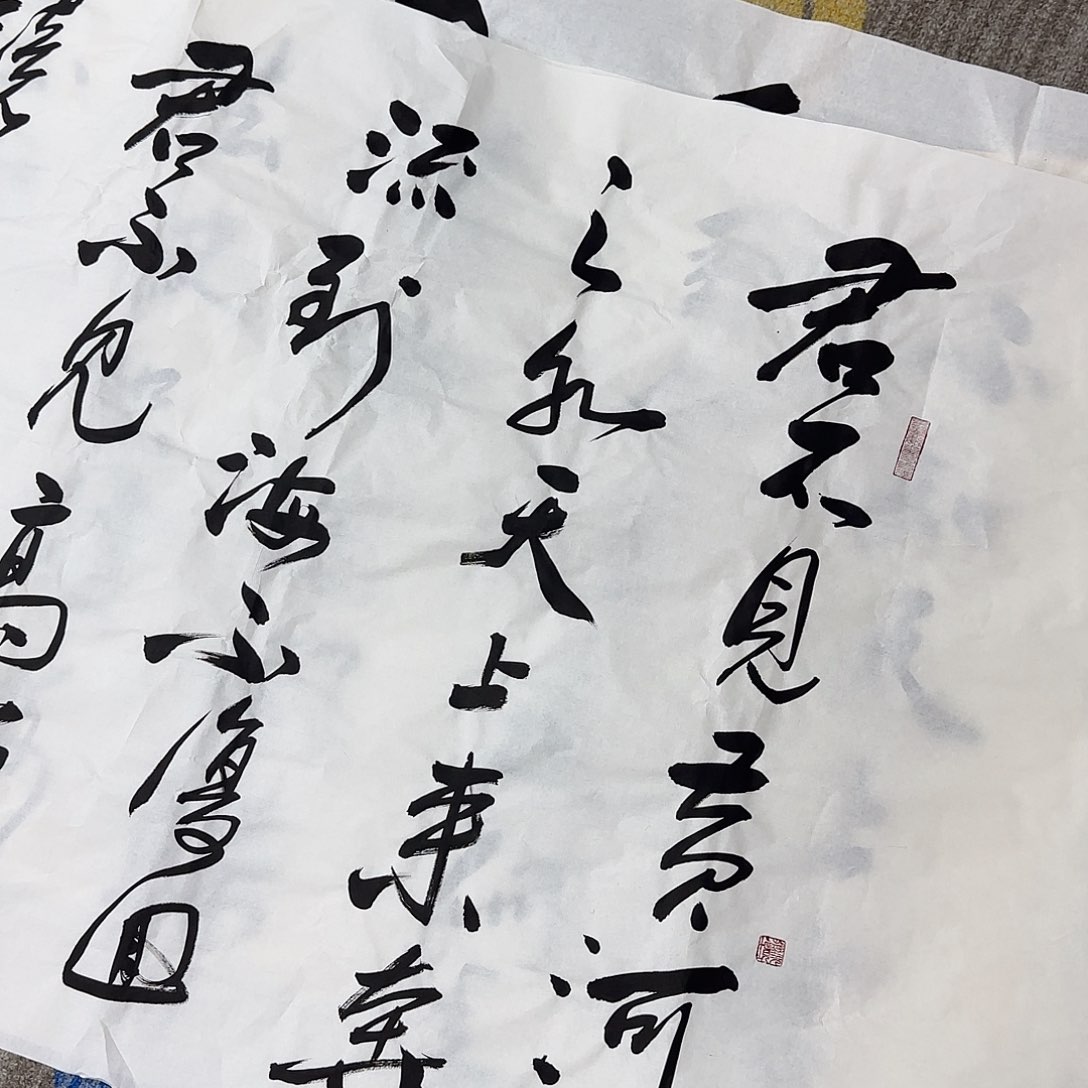 君不見黃河
之水天上來奔
流到海不復回
君不見高